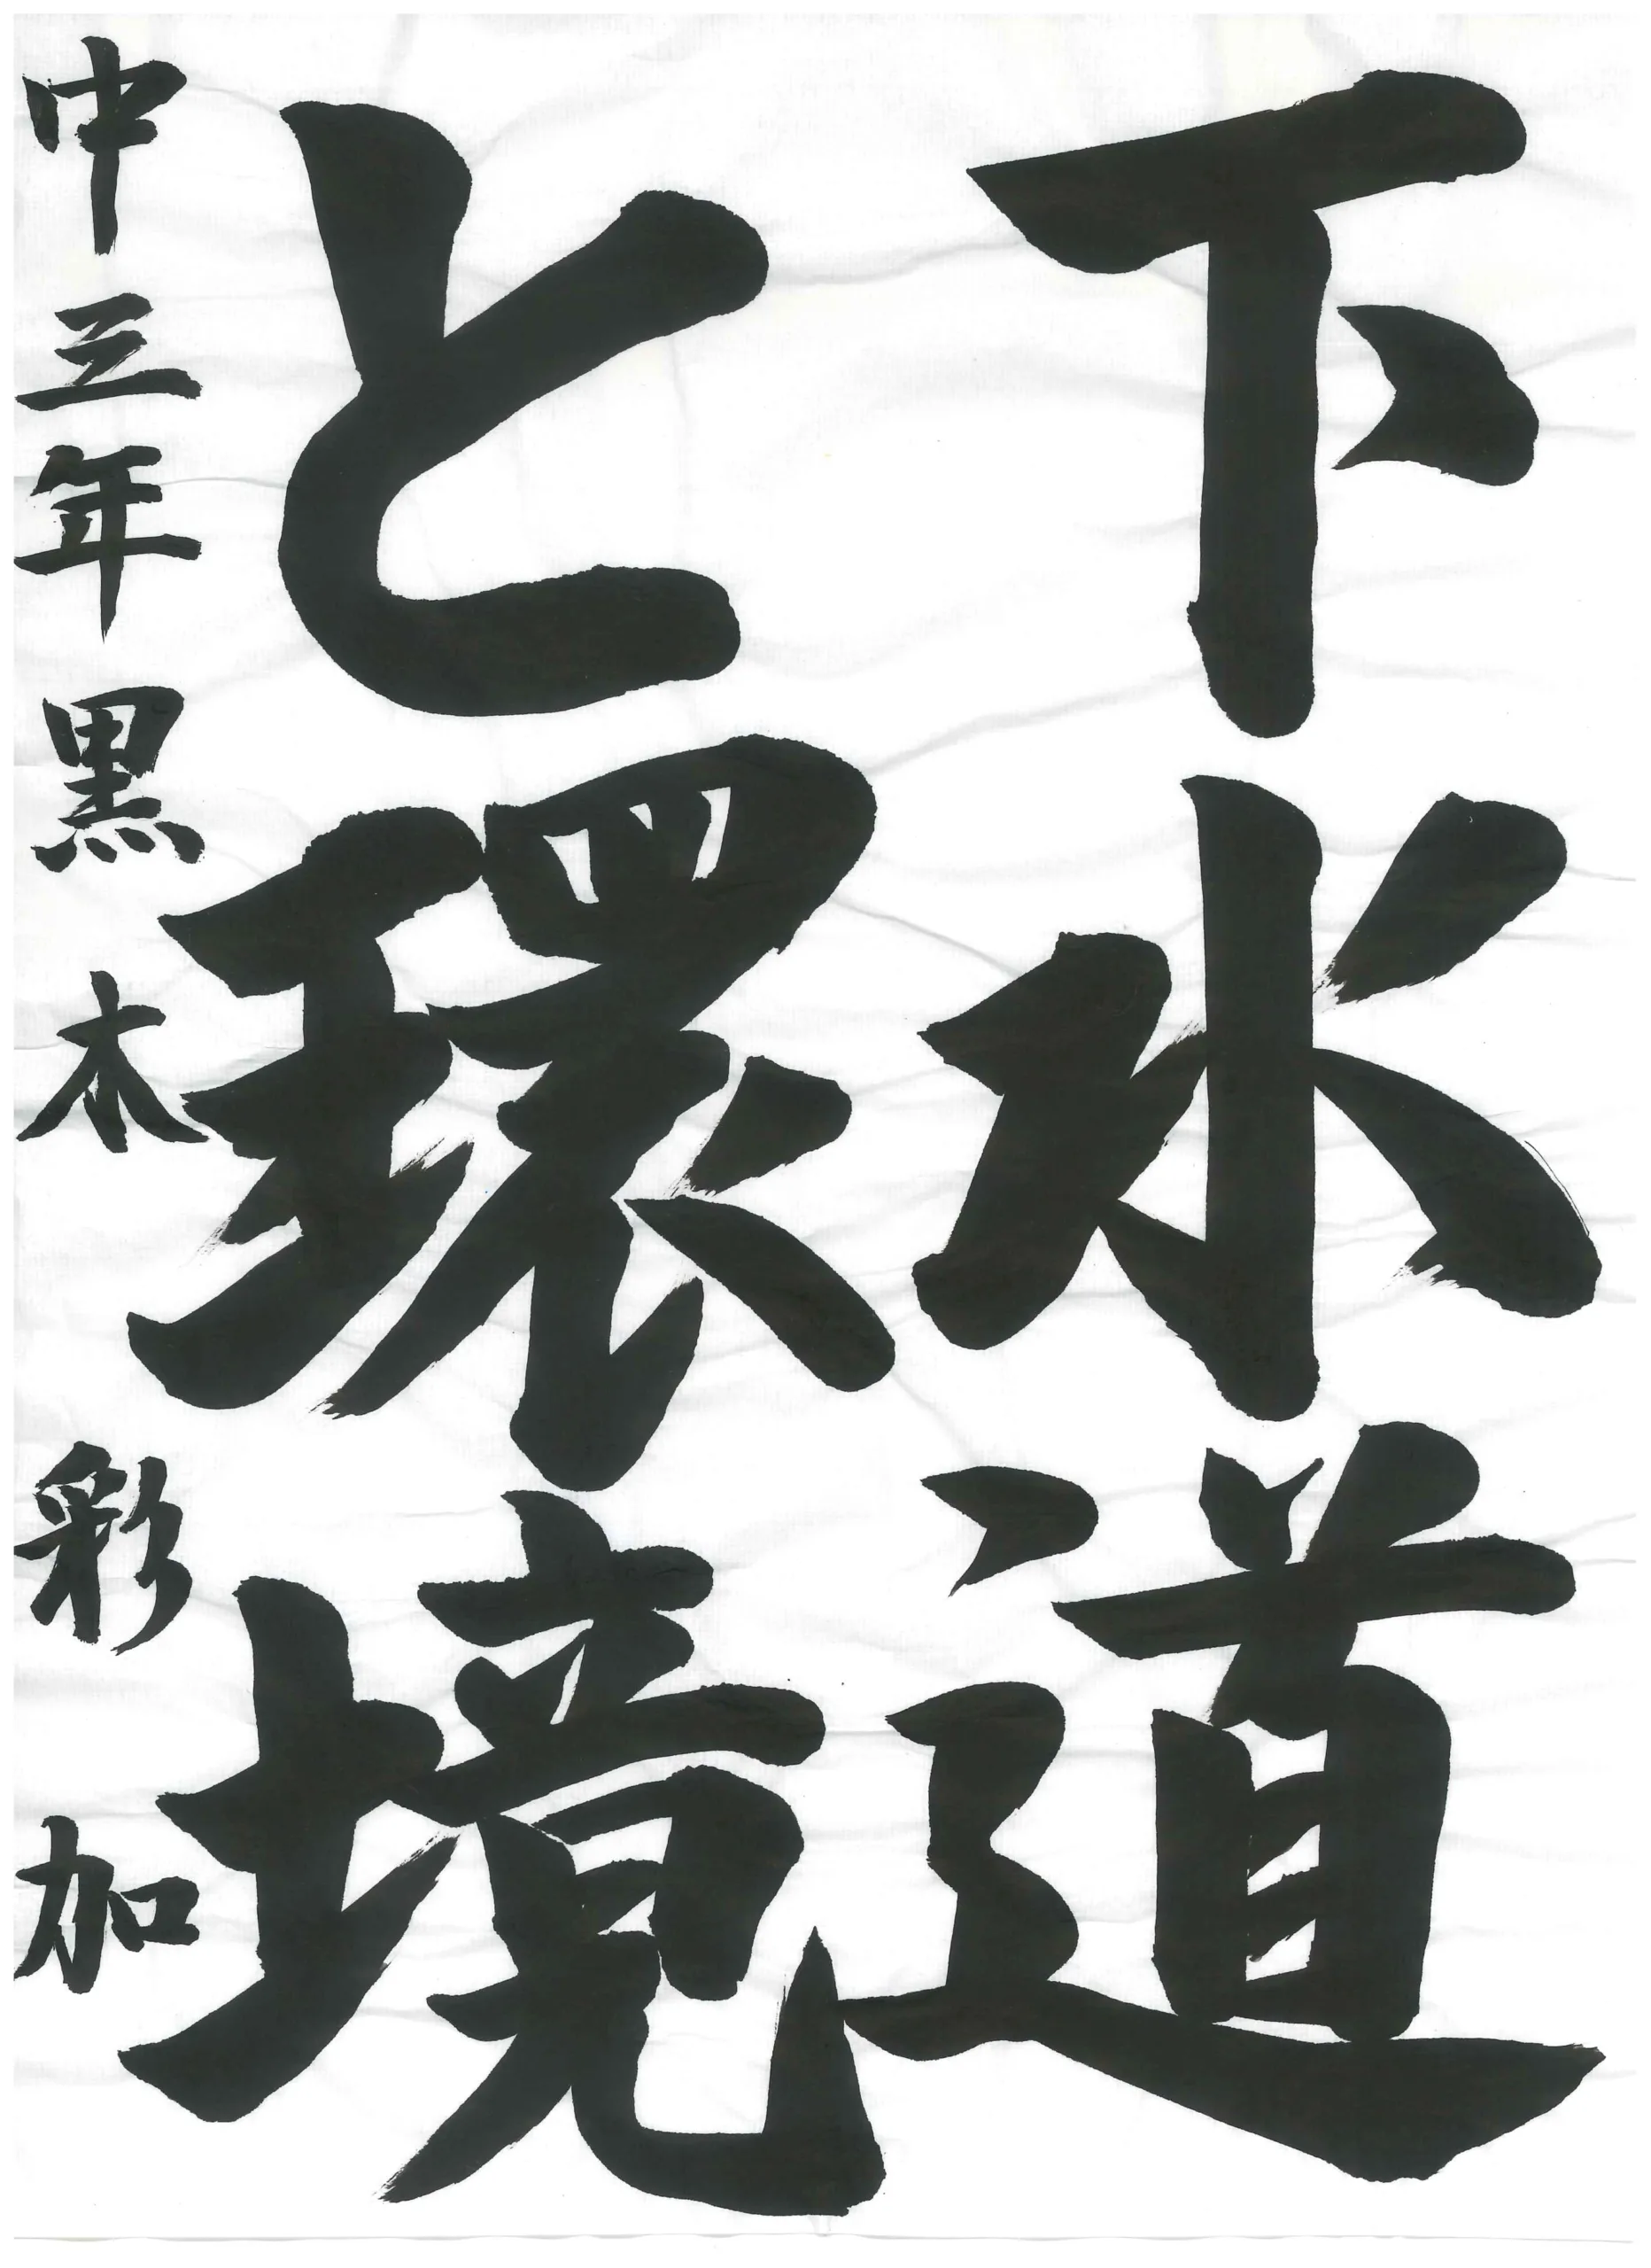 下水道
と環境
中三年 黒木 彩加